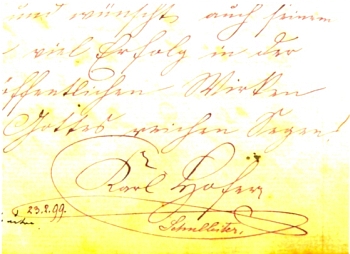 und wünscht auch seinem
viel Erfolg in der
öffentlichen Wirken
Gottes reichen Segen!
Karl Hofer
23.2.99.
Schulleiter.